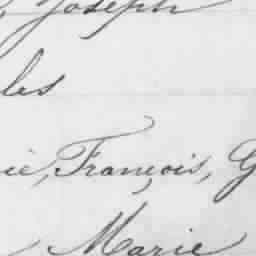 Joseph
les
ie, François, G
Marie